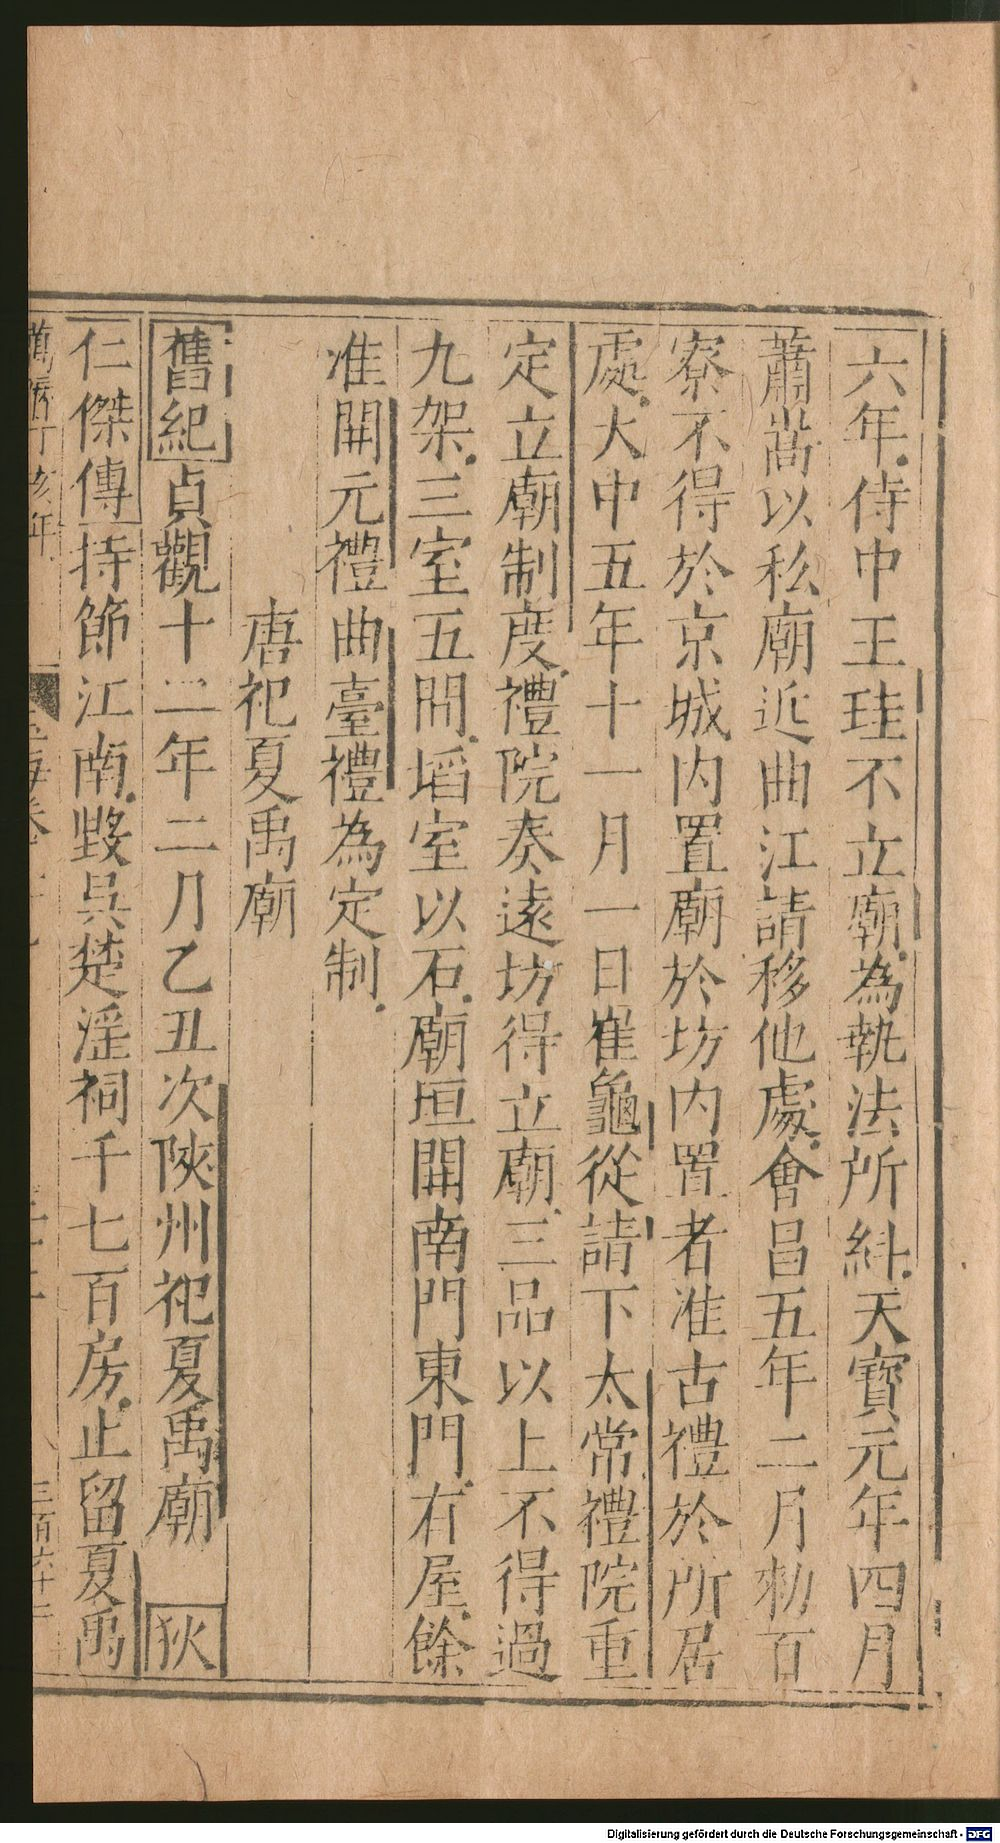 六年侍中王珪不立廟為執法所糾天寶元年四月
蕭嵩以私廟近曲江請移他處會昌五年二月勑百
寮不得於京城內置廟於坊內置者准古禮於所居
處大中五年十一月一日崔龜從請下太常禮院重
定立廟制度禮院奏遠坊得立廟三品以上不得過
九架三室五間堦室以石廟垣開南門東門有屋餘
准開元禮曲臺禮為定制
唐祀夏禹廟
舊紀貞觀十二年二月乙丑次陝州祀夏禹廟 狄
仁傑傳持節江南毀吳楚淫祠千七百房止留夏禹
萬曆丁亥年
三百六十二
Digitalisierung gefördert durch die Deutsche Forschungsgemeinschaft - DFG